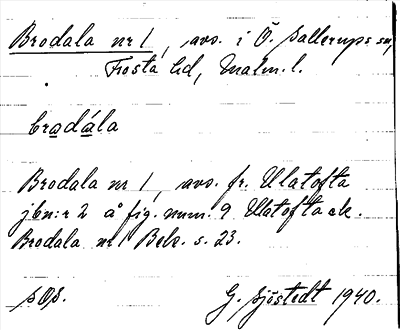 Brodala nr 1, avs. i Ö. Sallerups sn,
Frosta hd, Malm. l.
bradála
Brodala nr 1, avs. fr. Ulatofta
jbn:r 2 å fig. num. 9 Ulatofta ek.
Brodala nr 1 Beb. s. 23.
SOS.
G. Sjöstedt 1940.